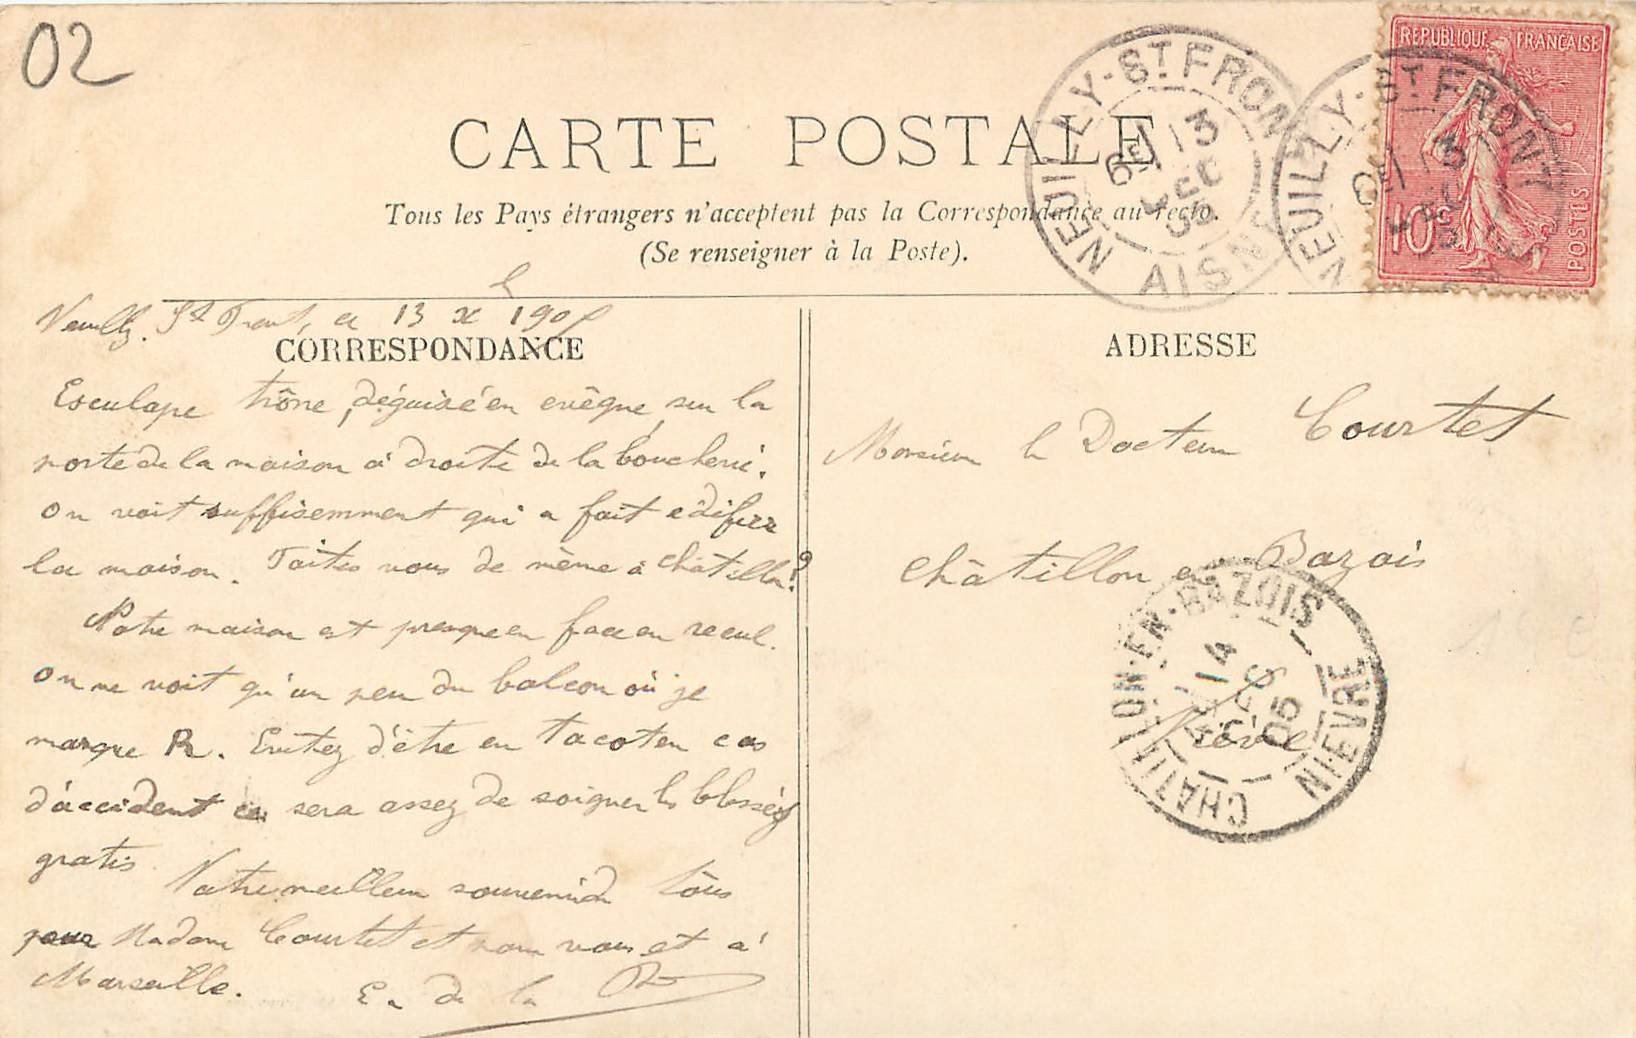 02
CARTE POSTALE
Tous les Pays étrangers n'acceptent pas la Correspondance au recto.
(Se renseigner à la Poste).
NEUILLY-ST FRONT
13
DEC
05
AISNE
NEUILLY-ST FRONT
13
REPUBLIQUE FRANÇAISE
10c
POSTES
Neuilly. St Front, 13 X 1905
CORRESPONDANCE
Esculape trône, déguisé en evêque, sur la
porte de la maison à droite de la boucherie.
On voit suffisemment qui a fait edifier
la maison. Faites vous de même à Châtillon?
Notre maison est presque en face en recul.
On ne voit qu'un peu du balcon où je
marque R. Evitez d'être en tacot en cas
d'accident ce sera assez de soigner les blessés
gratis. Notre meilleur souvenir à tous
pour Madame Courtet et pour vous et à
Marseille.
de la
ADRESSE
Monsieur le Docteur Courtet
Châtillon en Bazois
Nièvre
CHATILLON-EN-BAZOIS
14
DEC
05
NIEVRE